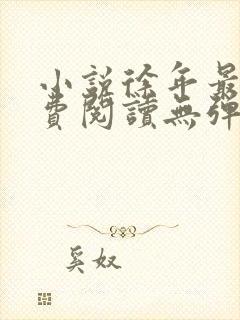 小說徐年最
費閱讀無彈
奚奴